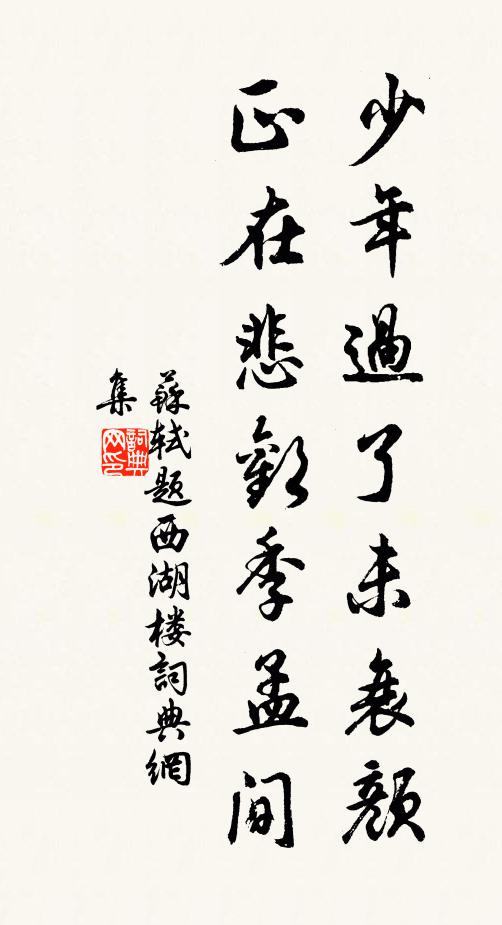 少年過了未衰顏
正在悲歡季孟间
蘇軾題西湖楼詞典網
集
詞典网印